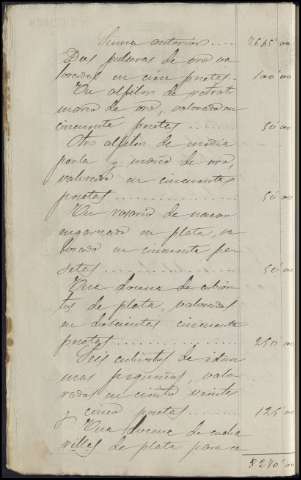 Suma anterior .... 7645"00
Dos pulseras de oro va
loradas en cien pesetas. 100"00
Un alfiler de retrat
marco de oro, valorado en
cincuenta pesetas ...... 50"00
Otro alfiler de media
perla y marco de oro,
valorado en cincuenta
pesetas ............... 50"00
Un rosario de nacar
engarzado en plata, va
lorado en cincuenta pe
setas ............... 50"00
Una docena de cubier
tos de plata, valorados
en doscientas cincuenta
pesetas .............. 250"00
Seis cubiertos de idem
mas pequeños, valo
rados en ciento veinte
y cinco pesetas ..... 125"00
Una docena de cucha
rillas de plata para
8270"00